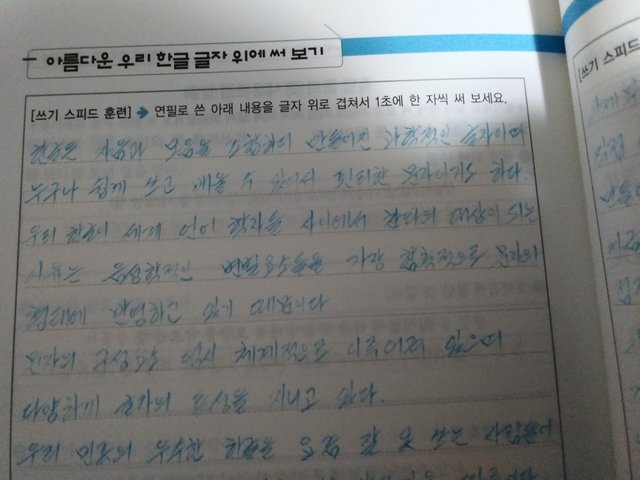 아름다운 우리 한글 글자 위에 써 보기
[쓰기 스피드 훈련] ➔ 연필로 쓴 아래 내용을 글자 위로 겹쳐서 1초에 한 자씩 써 보세요.
한글은 자음과 모음을 조합하여 만들어진 과학적인 글자이며
누구나 쉽게 쓰고 배울 수 있어서 편리한 문자이기도 하다.
우리 한글이 세계 언어 학자들 사이에서 감탄의 대상이 되는
이유는 음성학적인 변별요소들을 가장 과학적으로 문자의
형태에 반영하고 있기 때문이다
문자의 구성요소 역시 체계적으로 이루어져 있으며
다양하게 글자의 표상을 지니고 있다.
우리 민족의 우수한 한글을 요즘 잘 못 쓰는 사람들이
[쓰기 스피드